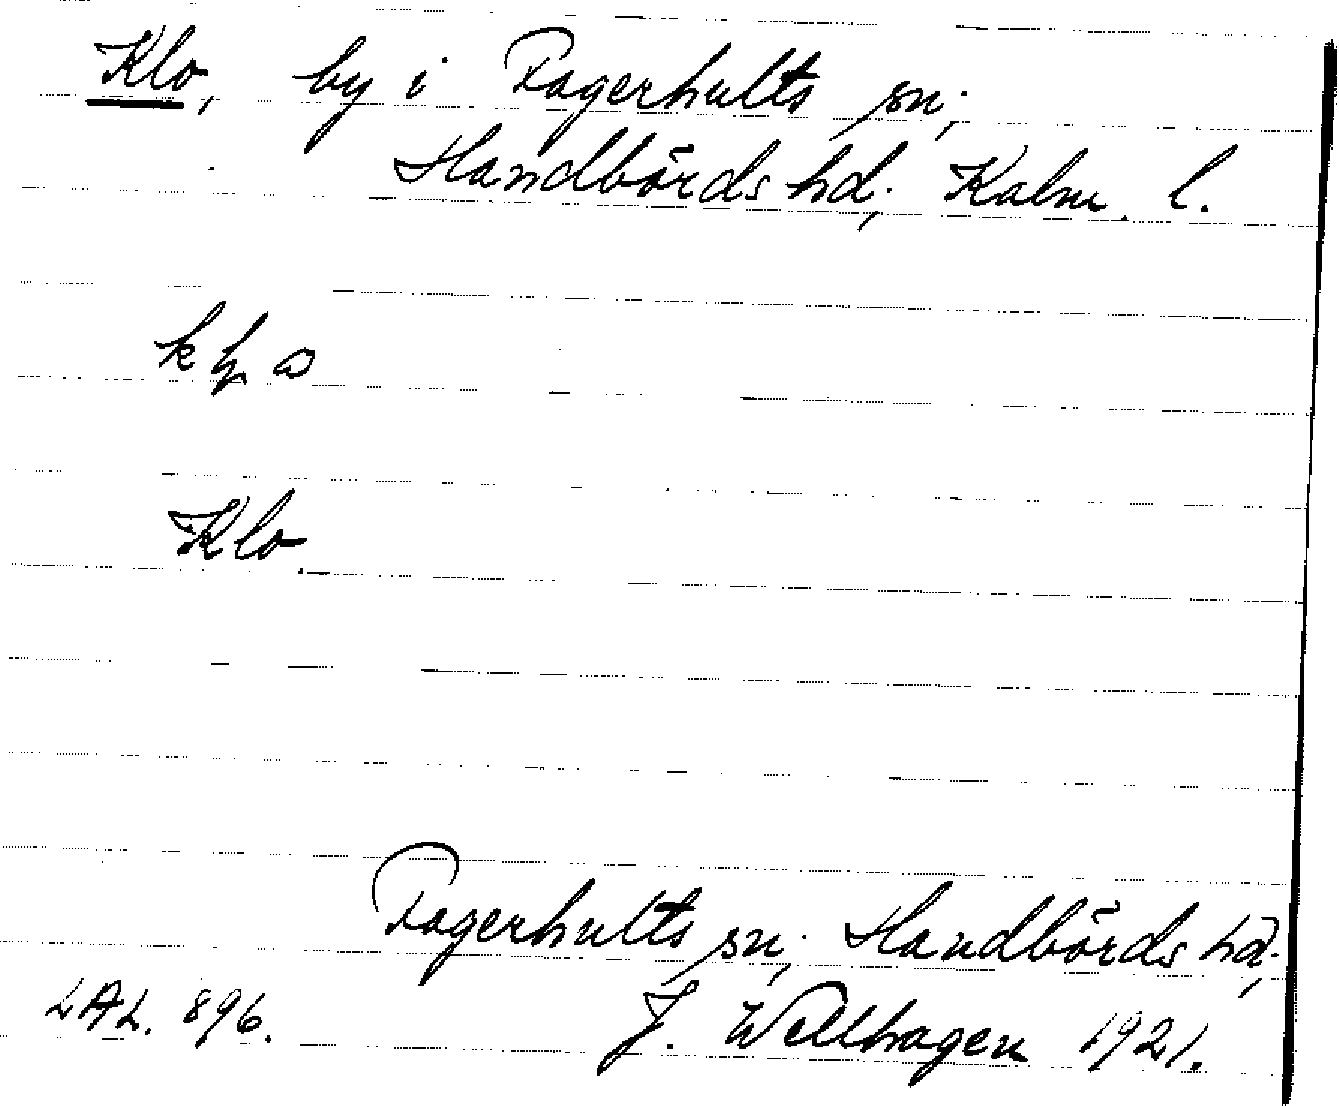 Klo, by i Fagerhults sn;
Handbörds hd; Kalm. l.
Klo.
Fagerhults sn; Handbörds hd;
LAL. 896. J. Wellhagen 1921.